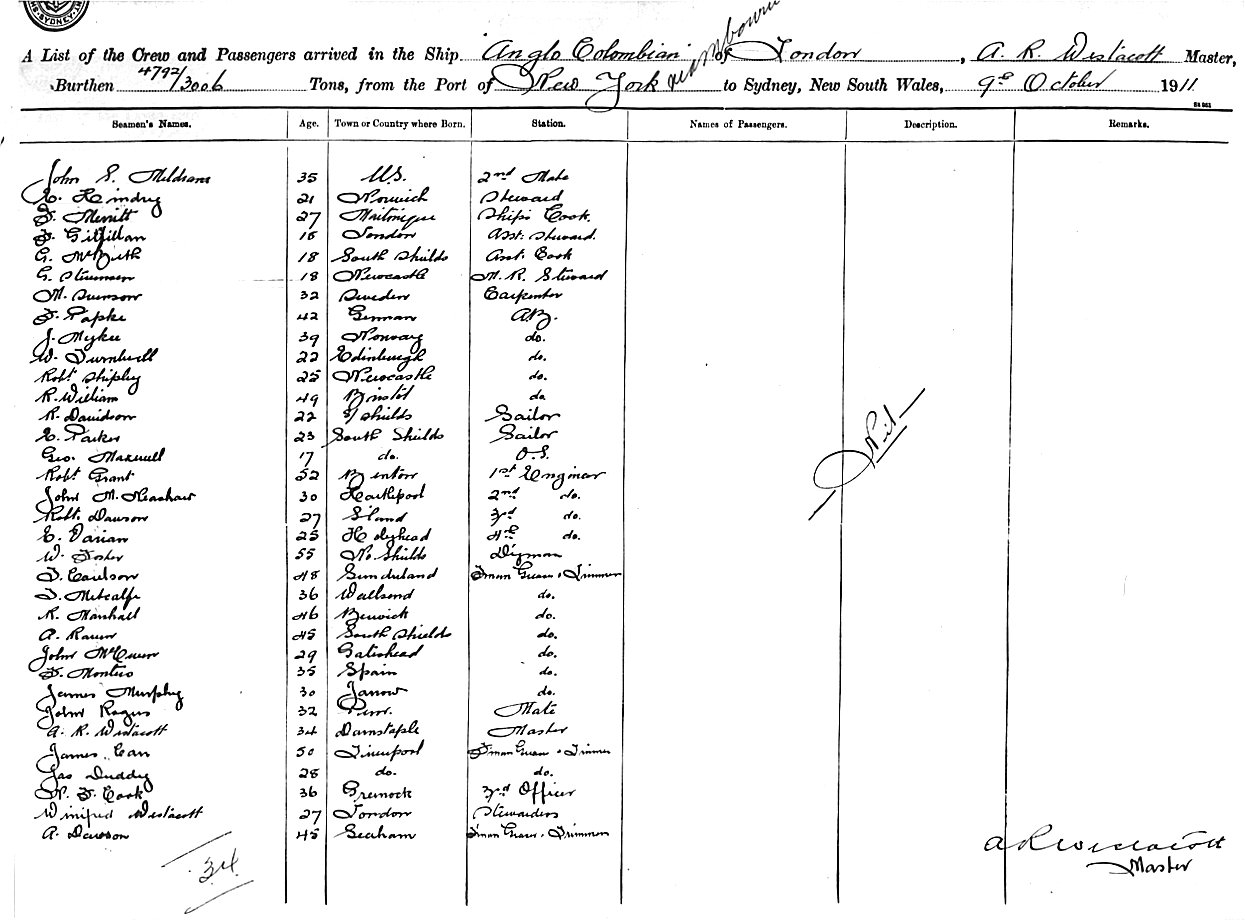 SYDNEY
A List of the Crew and Passengers arrived in the Ship Anglo Colombian of London, A. R. Westacott Master,
Burthen 4792/3006 Tons, from the Port of New York via Melbourne to Sydney, New South Wales, 9th October 1911
Seamen's Names. Age. Town or Country where Born. Station. Names of Passengers. Description. Remarks.
John S. 35 U.S. 2nd Mate
E. Hindry 21 Norwich Steward
F. Merritt 27 Ships Cook.
F. Gilfillan 18 London Asst: Steward.
G. McBeth 18 South Shields Asst. Cook
G. 18 Newcastle M. R. Steward
M. 32 Sweden Carpenter
F. Papke 42 German A.B.
J. 39 Norway do.
W. Turnbull 22 Edinburgh do.
Robt Shipley 25 Newcastle do.
R. William 49 Bristol do
R. Davidson 22 S/Shields Sailor
E. Parker 23 South Shields Sailor
Geo. Maxwell 17 do. O.S.
Robt Grant 52 1st Engineer
John M. 30 Hartlepool 2nd do.
Robt. Dawson 27 3rd do.
E. 25 Holyhead 4th do.
W. Foster 55 No. Shields
T. 48 Sunderland Fman Greas. Trimmer
T. Metcalfe 36 Wallsend do.
R. Marshall 46 Berwick do.
A. 45 South Shields do.
John 29 Gateshead do.
F. 35 Spain do.
James Murphy 30 Jarrow do.
John Rogers 32 Mate
A. R. Westacott 34 Barnstaple Master
James Carr 50 Liverpool Fman Greas. Trimmer
Jas Duddy 28 do. do.
N. F. Cook 36 Greenock 3rd Officer
Winifred Westacott 27 London Stewardess
A. Dawson 45 Seaham Fman Greas. Trimmer
Nil
34
A R Westacott
Master